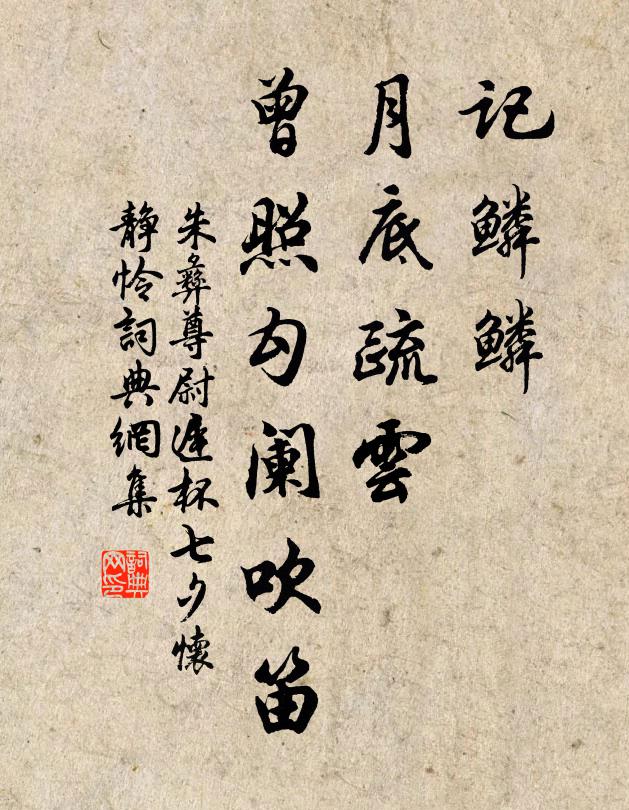 记鳞鳞
月底疏雲
曾照勾阑吹笛
朱彝尊尉遲杯七夕懷
静怜詞典網集
詞典
网印